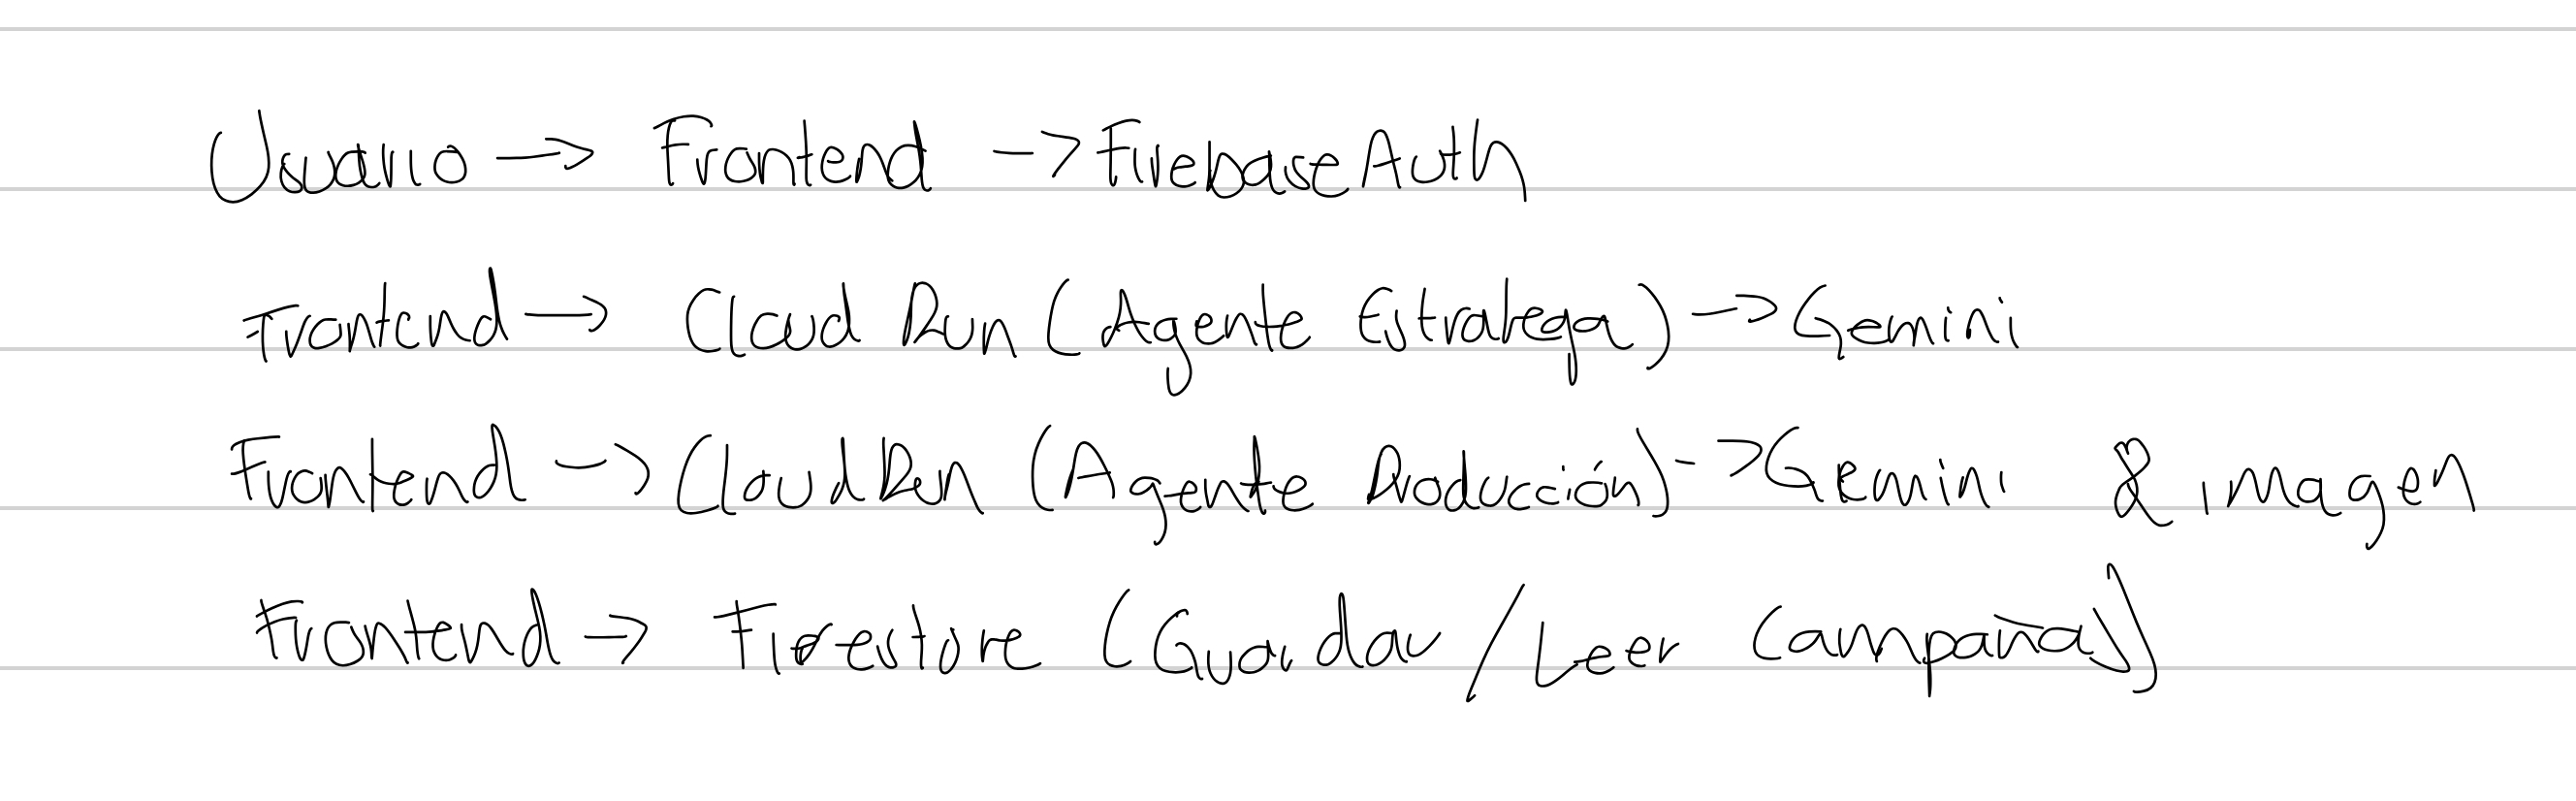 Usuario -> Frontend -> Firebase Auth
Frontend -> Cloud Run (Agente Estratega) -> Gemini
Frontend -> Cloud Run (Agente Producción) -> Gemini & imagen
Frontend -> Firestore (Guardar / Leer Campañas)